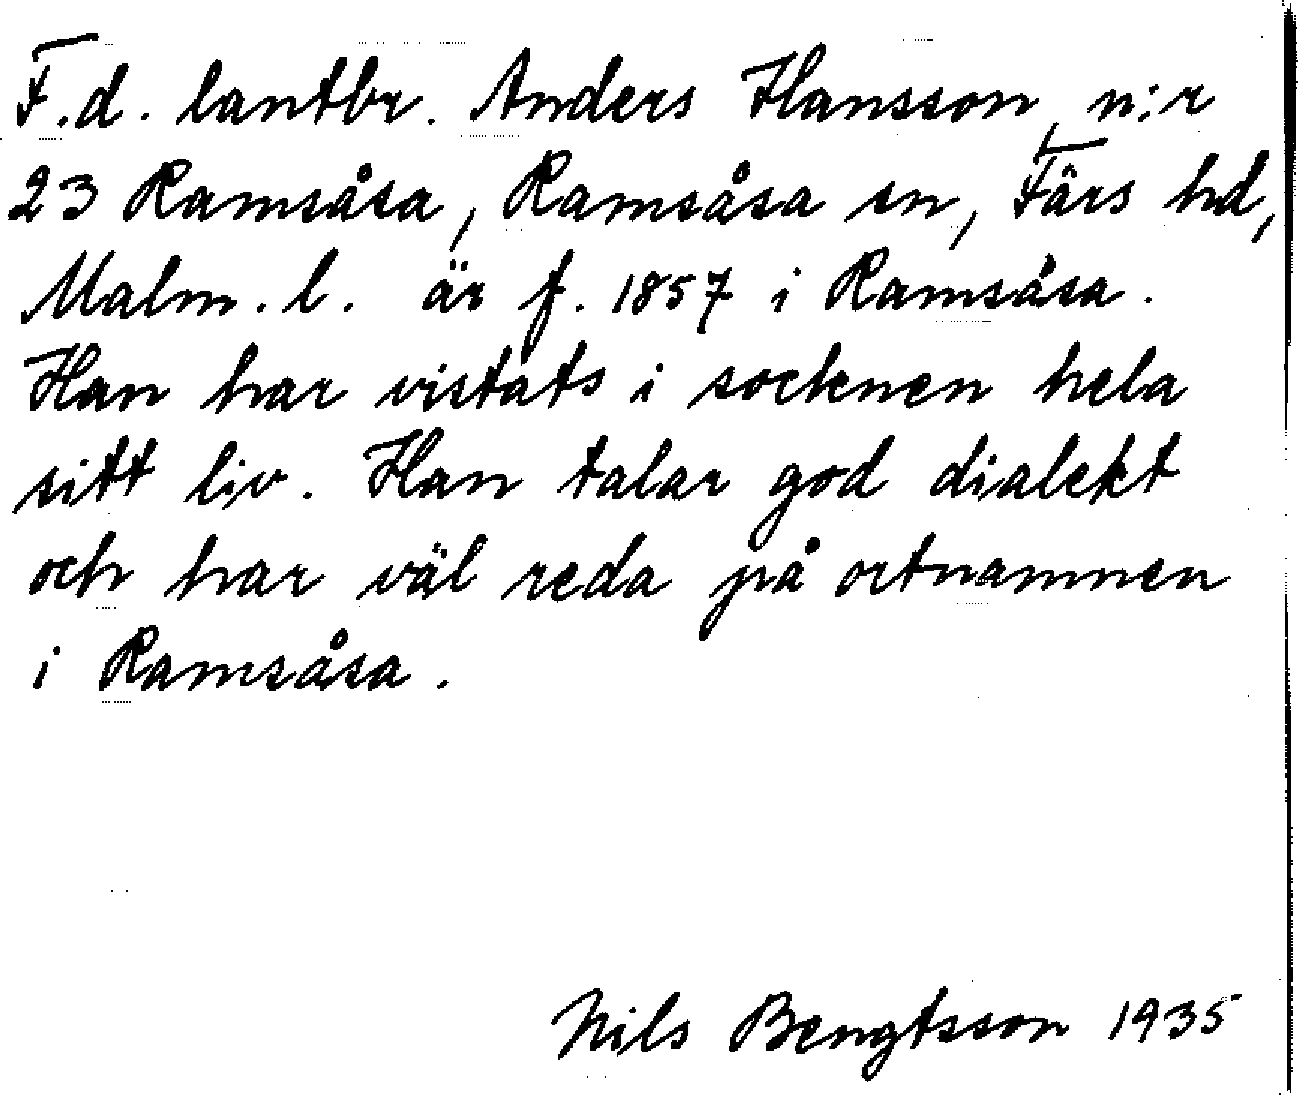 F.d. lantbr. Anders Hansson, n:r
23 Ramsåsa, Ramsåsa sn, Färs hd,
Malm. l. är f. 1857 i Ramsåsa.
Han har vistats i socknen hela
sitt liv. Han talar god dialekt
och har väl reda på ortnamnen
i Ramsåsa.
Nils Bengtsson 1935